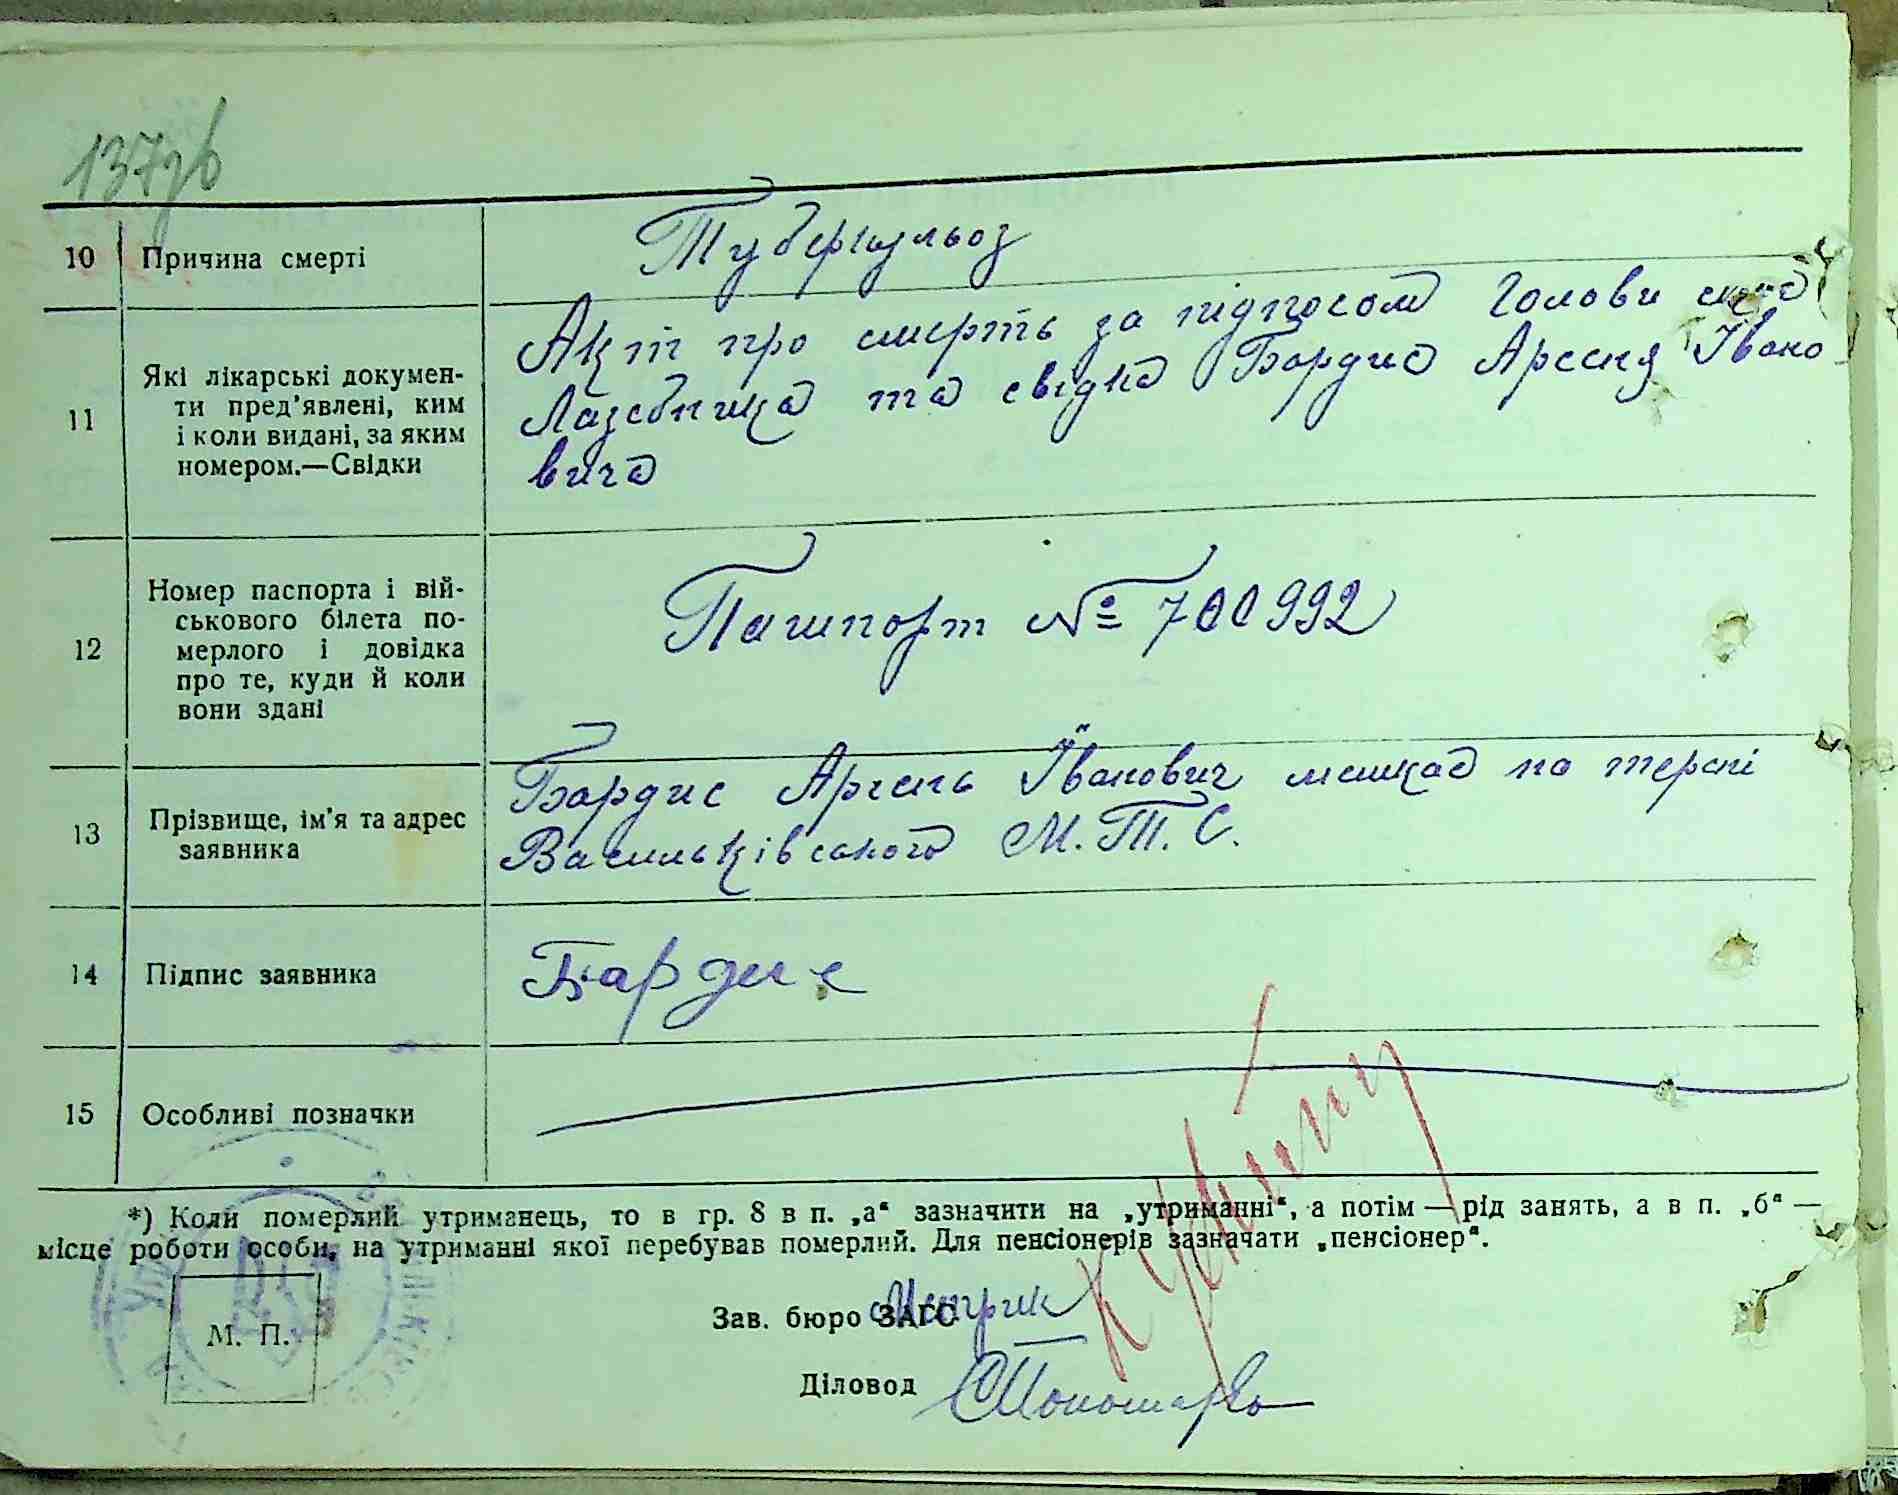 137зв
10 Причина смерті
Туберкульоз
11 Які лікарські докумен-
ти пред'явлені, ким
і коли видані, за яким
номером.—Свідки
Акт про смерть за підписом Голови
Лазебника та свідка Бардиса Арсеня Івано
вича
12 Номер паспорта і вій-
ськового білета по-
мерлого і довідка
про те, куди й коли
вони здані
Пашпорт № 700992
13 Прізвище, ім'я та адрес
заявника
Бардис Арсень Іванович мешкає на
Васильківського М.Т.С.
14 Підпис заявника
Бардис
15 Особливі позначки
*) Коли померлий утриманець, то в гр. 8 в п. „а“ зазначити на „утриманні“, а потім — рід занять, а в п. „б“ —
місце роботи особи, на утриманні якої перебував померлий. Для пенсіонерів зазначати „пенсіонер“.
М. П.
Зав. бюро ЗАГС
Діловод